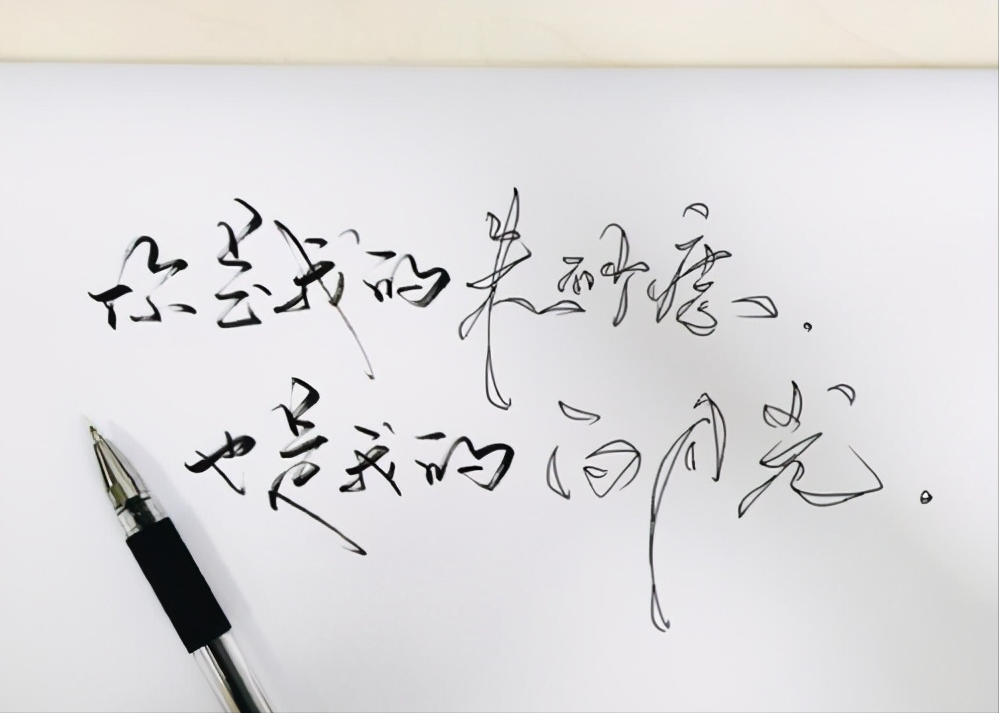 你是我的朱砂痣。
也是我的白月光。